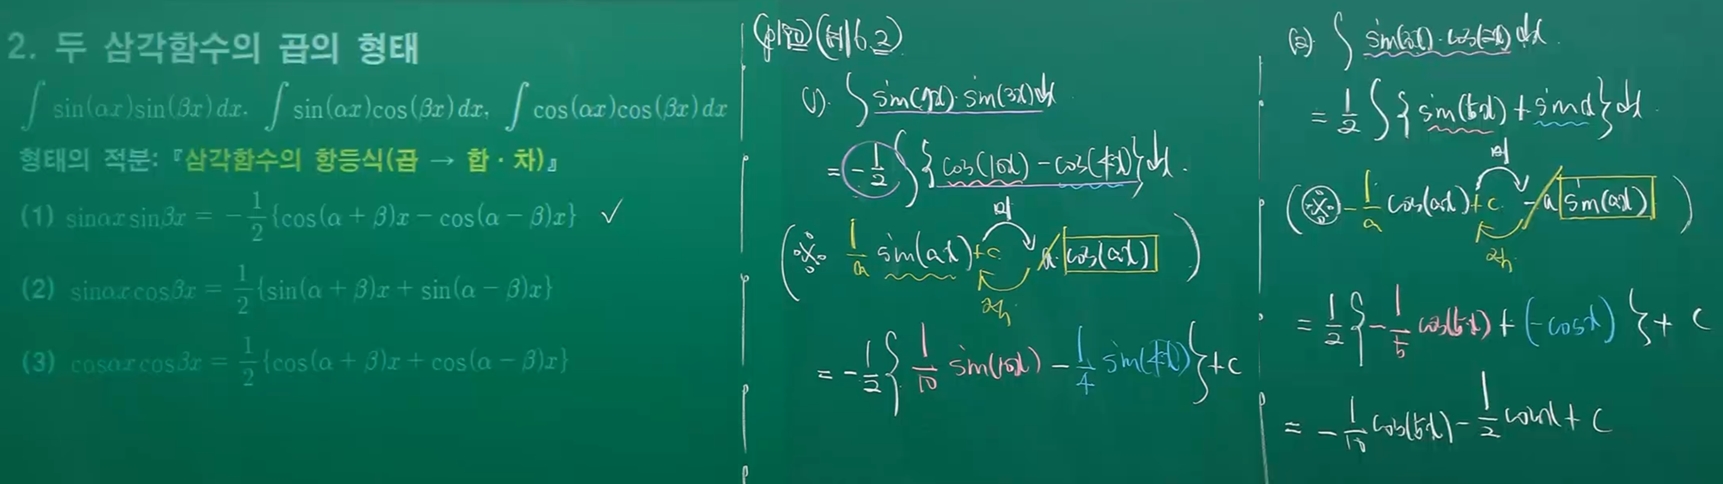 2. 두 삼각함수의 곱의 형태
∫ sin(αx)sin(βx)dx, ∫ sin(αx)cos(βx)dx, ∫ cos(αx)cos(βx)dx
형태의 적분: 『삼각함수의 항등식(곱 → 합·차)』
(1) sinαxsinβx = -1/2{cos(α + β)x - cos(α - β)x} ✓
(2) sinαxcosβx = 1/2{sin(α + β)x + sin(α - β)x}
(3) cosαxcosβx = 1/2{cos(α + β)x + cos(α - β)x}
(1). ∫ sin(7x)·sin(3x)dx
= -1/2 ∫{cos(10x) - cos(4x)}dx.
(※ 1/a sin(ax)+c 미 a·cos(ax))
적
= -1/2{1/10 sin(10x) - 1/4 sin(4x)}+c
(2). ∫ sin(3x)·cos(2x)dx.
= 1/2 ∫{sin(5x)+sinx}dx.
(※ -1/a cos(ax)+c 미 -a sin(ax))
적
= 1/2{-1/5 cos(5x)+(-cosx)}+c
= -1/10 cos(5x) - 1/2 cosx + c